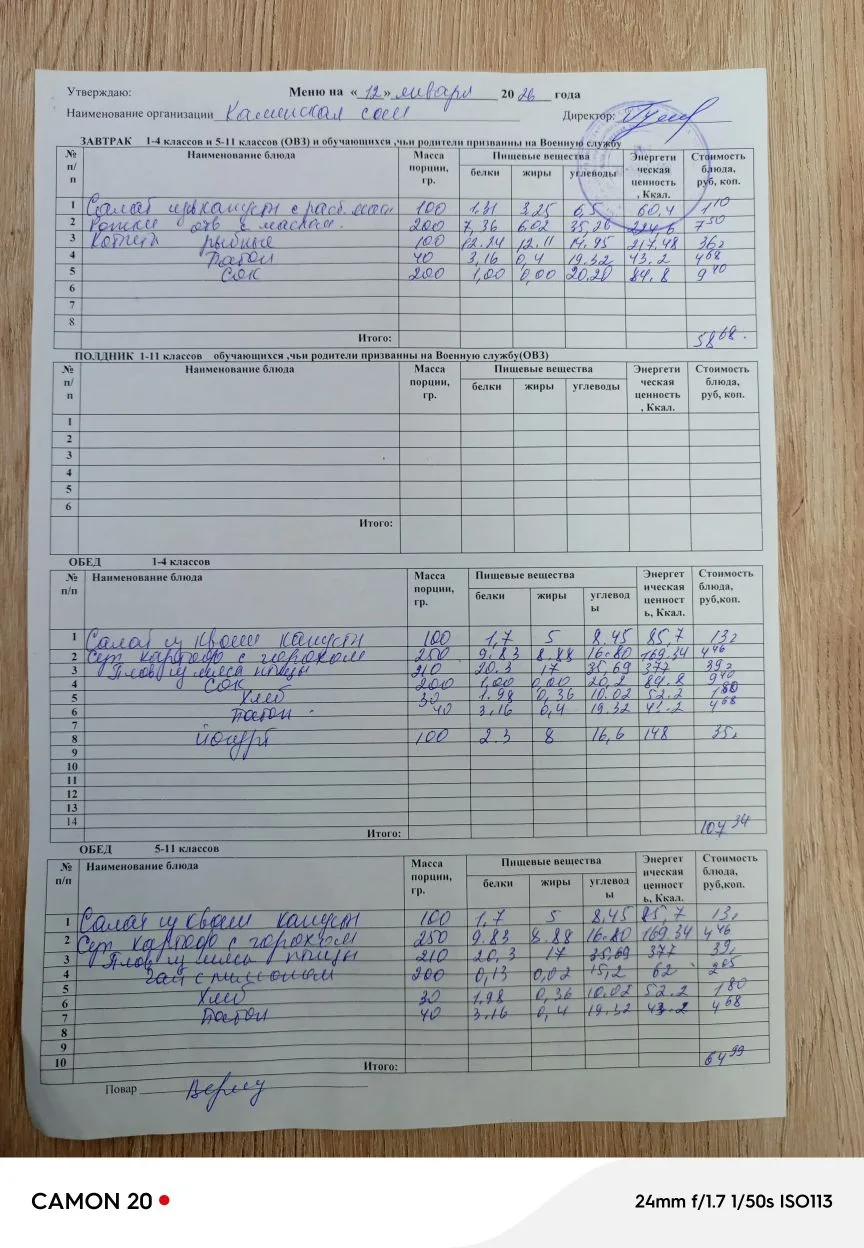 Утверждаю: Меню на «12» января 2026 года
Наименование организации Каменская сош Директор:
ЗАВТРАК 1-4 классов и 5-11 классов (ОВЗ) и обучающихся ,чьи родители призванны на Военную службу
№ п/п Наименование блюда Масса порции, гр. Пищевые вещества белки жиры углеводы Энергетическая ценность, Ккал. Стоимость блюда, руб, коп.
1 Салат из капусты с раст. масл 100 1,31 3,25 6,5 60,4 1 10
2 Рожки отв с маслом. 200 7,36 6,02 35,26 224,6 7 50
3 Котлеты рыбные 100 12.24 12.11 14,95 217.48 36,
4 Батон 40 3,16 0,4 19.32 43.2 4 68
5 Сок 200 1,00 0,00 20,20 84,8 9 40
6
7
8
Итого: 58 68.
ПОЛДНИК 1-11 классов обучающихся ,чьи родители призванны на Военную службу(ОВЗ)
№ п/п Наименование блюда Масса порции, гр. Пищевые вещества белки жиры углеводы Энергетическая ценность, Ккал. Стоимость блюда, руб, коп.
1
2
3
4
5
6
Итого:
ОБЕД 1-4 классов
№ п/п Наименование блюда Масса порции, гр. Пищевые вещества белки жиры углеводы Энергетическая ценность, Ккал. Стоимость блюда, руб,коп.
1 Салат из кваш капусты 100 1,7 5 8,45 85,7 13,
2 Суп картофо с горохом 250 9.83 8.88 16.80 169.34 4 46
3 Плов из мяса птицы 210 20.3 17 35,69 377 39,
4 Сок 200 1,00 0,00 20,2 84.8 9 40
5 Хлеб 30 1.98 0,36 10.02 52.2 1 80
6 Батон 40 3.16 0,4 19.32 43.2 4 68
7
8 Йогурт 100 2.3 8 16,6 148 35,
9
10
11
12
13
14
Итого: 107 34
ОБЕД 5-11 классов
№ п/п Наименование блюда Масса порции, гр. Пищевые вещества белки жиры углеводы Энергетическая ценность, Ккал. Стоимость блюда, руб,коп.
1 Салат из кваш капусты 100 1,7 5 8,45 85,7 13,
2 Суп картофо с горохом 250 9.83 8.88 16.80 169.34 4 46
3 Плов из мяса птицы 210 20,3 17 35,69 377 39,
4 Чай с лимоном 200 0,13 0,02 15,2 62 2 05
5 Хлеб 30 1,98 0,36 10.02 52.2 1 80
6
7 Батон 40 3.16 0,4 19.32 43.2 4 68
8
9
10
Итого: 64 99
Повар
CAMON 20
24mm f/1.7 1/50s ISO113